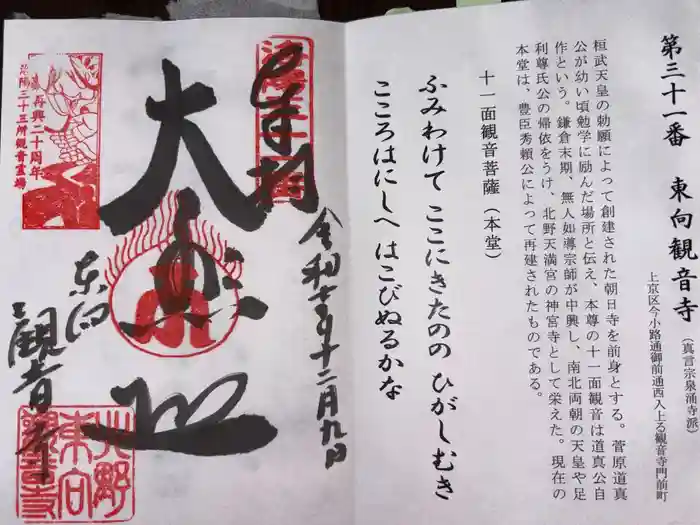 第三十一番 東向観音寺（真言宗泉涌寺派）
上京区今小路通御前通西入上る観音寺門前町
桓武天皇の勅願によって創建された朝日寺を前身とする。菅原道真
公が幼い頃勉学に励んだ場所と伝え、本尊の十一面観音は道真公自
作という。鎌倉末期、無人如導宗師が中興し、南北両朝の天皇や足
利尊氏公の帰依をうけ、北野天満宮の神宮寺として栄えた。現在の
本堂は、豊臣秀頼公によって再建されたものである。
十一面観音菩薩（本堂）
ふみわけて ここにきたのの ひがしむき
こころはにしへ はこびぬるかな
奉拝
大悲
東向
観音寺
再興二十周年
洛陽三十三所観音霊場
北野
東向
観音寺